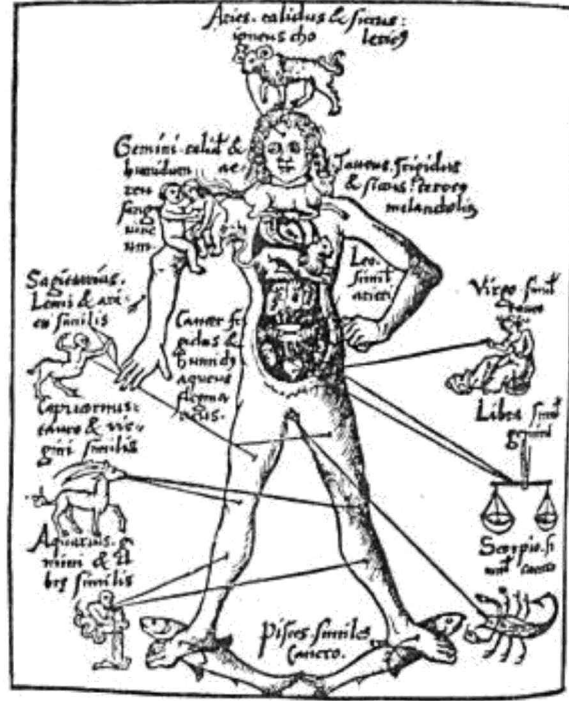 Aries. calidus & siccus:
igneus cho lericꝰ
Gemini. calid &
humidum ae-
reu
sang
uine
um
Taurus. frigidus
& siccus
melancolicꝰ
Leo.
simil
arieti
Sagitarius.
Leoni & ari
eti similis
Cancer fri
gidus &
humidꝰ
aqueus
flegma
ticus.
Virgo simil
tauro
Capricornus:
tauro & vir-
gini similis
Libra simil
gemini
Aquarius. ge
mini & li
bre similis
Scorpio. si
mil cancro
Pisces. similes
Cancro.